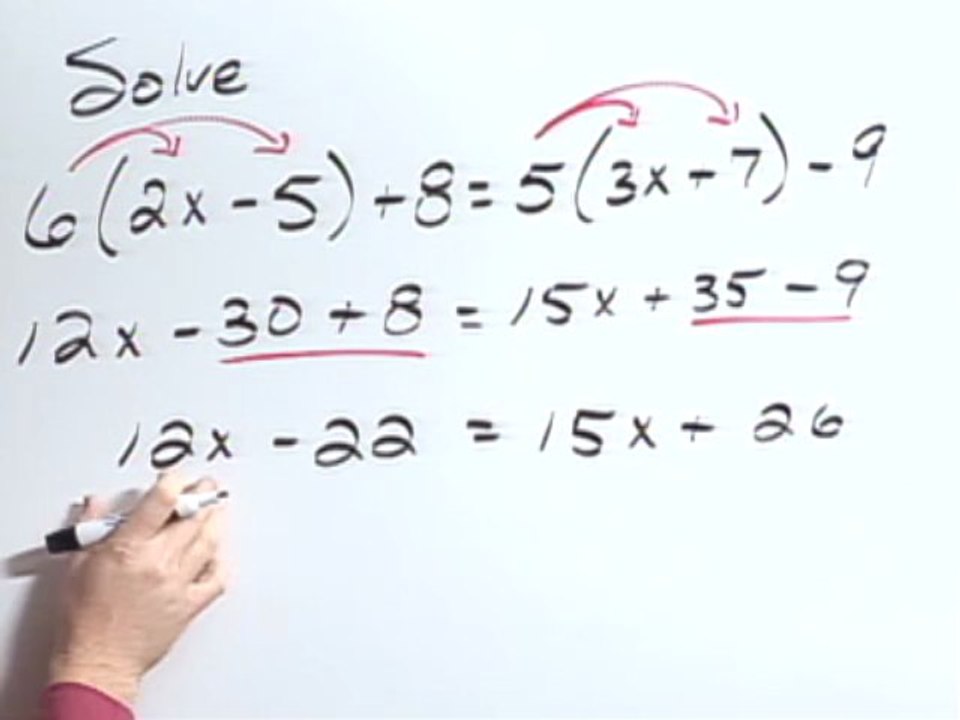 Solve
6(2x - 5) + 8 = 5(3x + 7) - 9
12x - 30 + 8 = 15x + 35 - 9
12x - 22 = 15x + 26